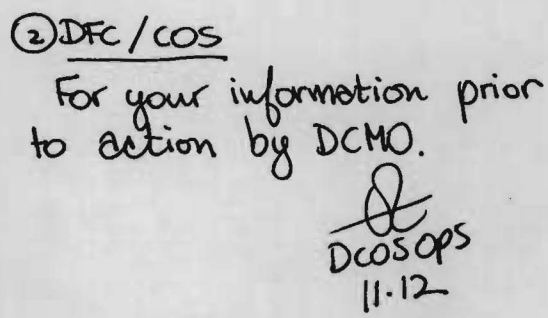 ② DFC / COS
For your information prior
to action by DCMO.
DCOS OPS
11.12